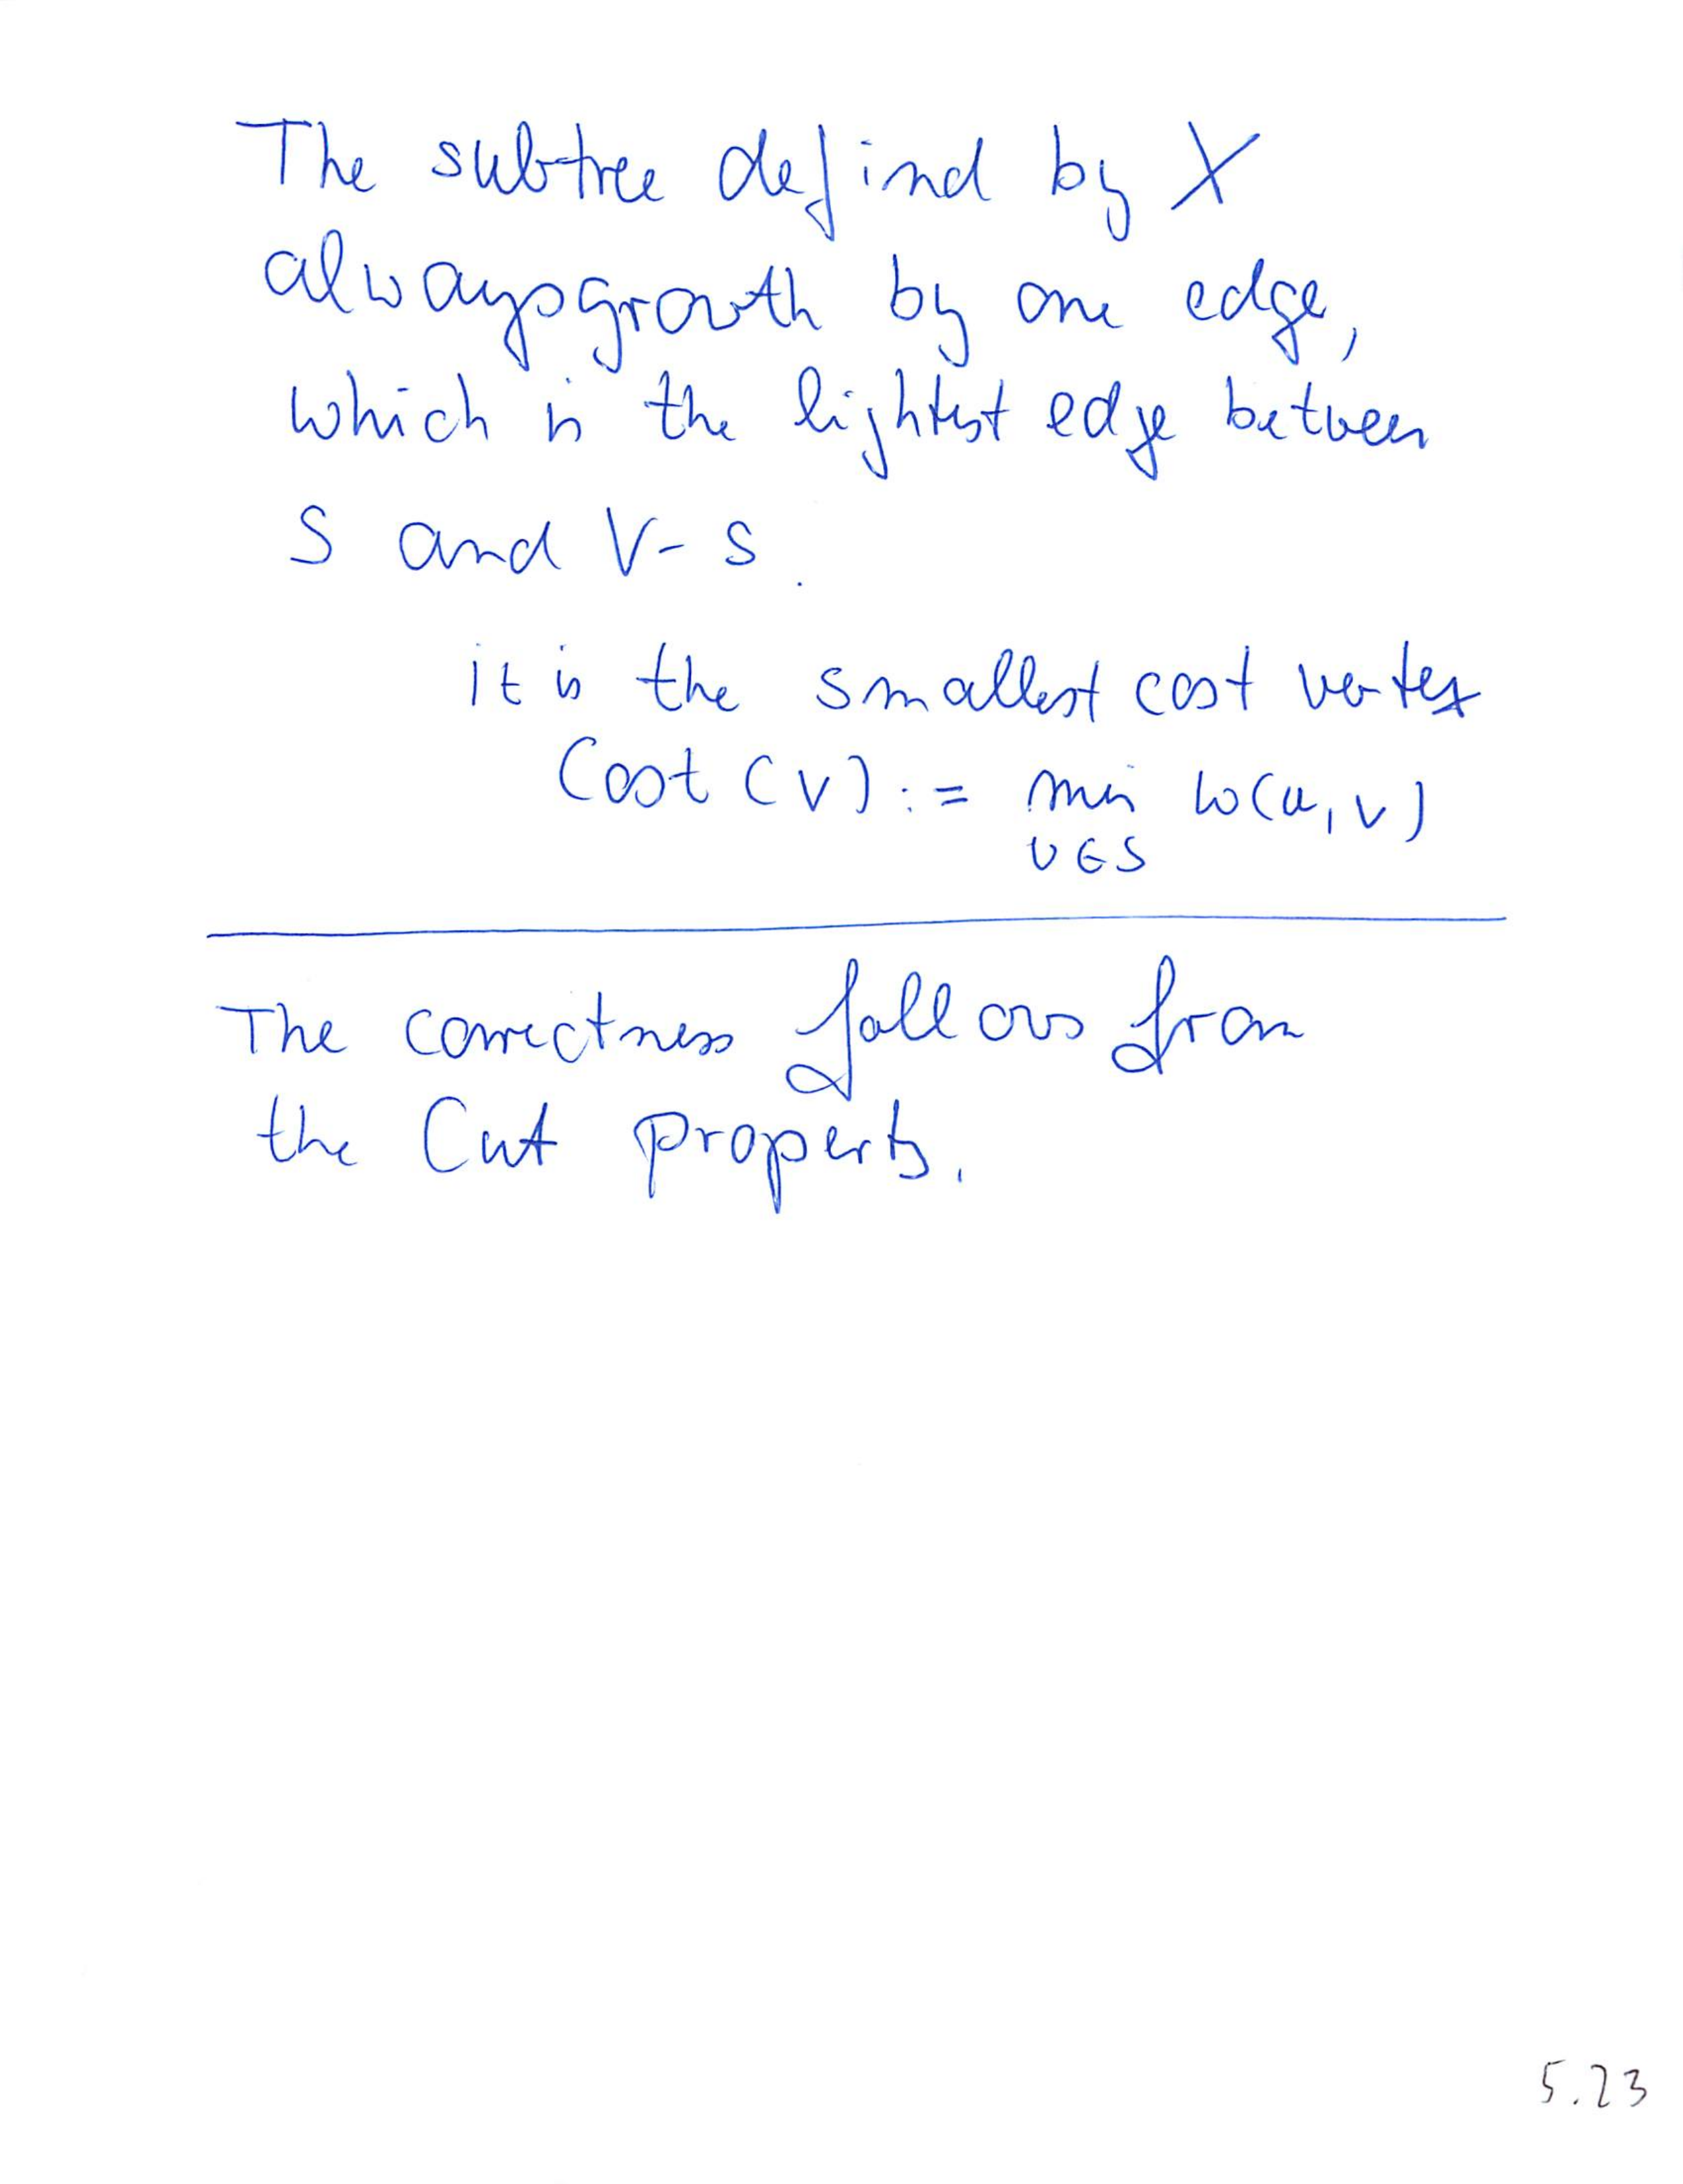 The subtree defind by X
always growth by one edge,
which is the lightest edge between
S and V-S.
it is the smallest cost vertex
Cost (v) := min w(u,v)
u∈S
The correctness follows from
the Cut property.
5.23